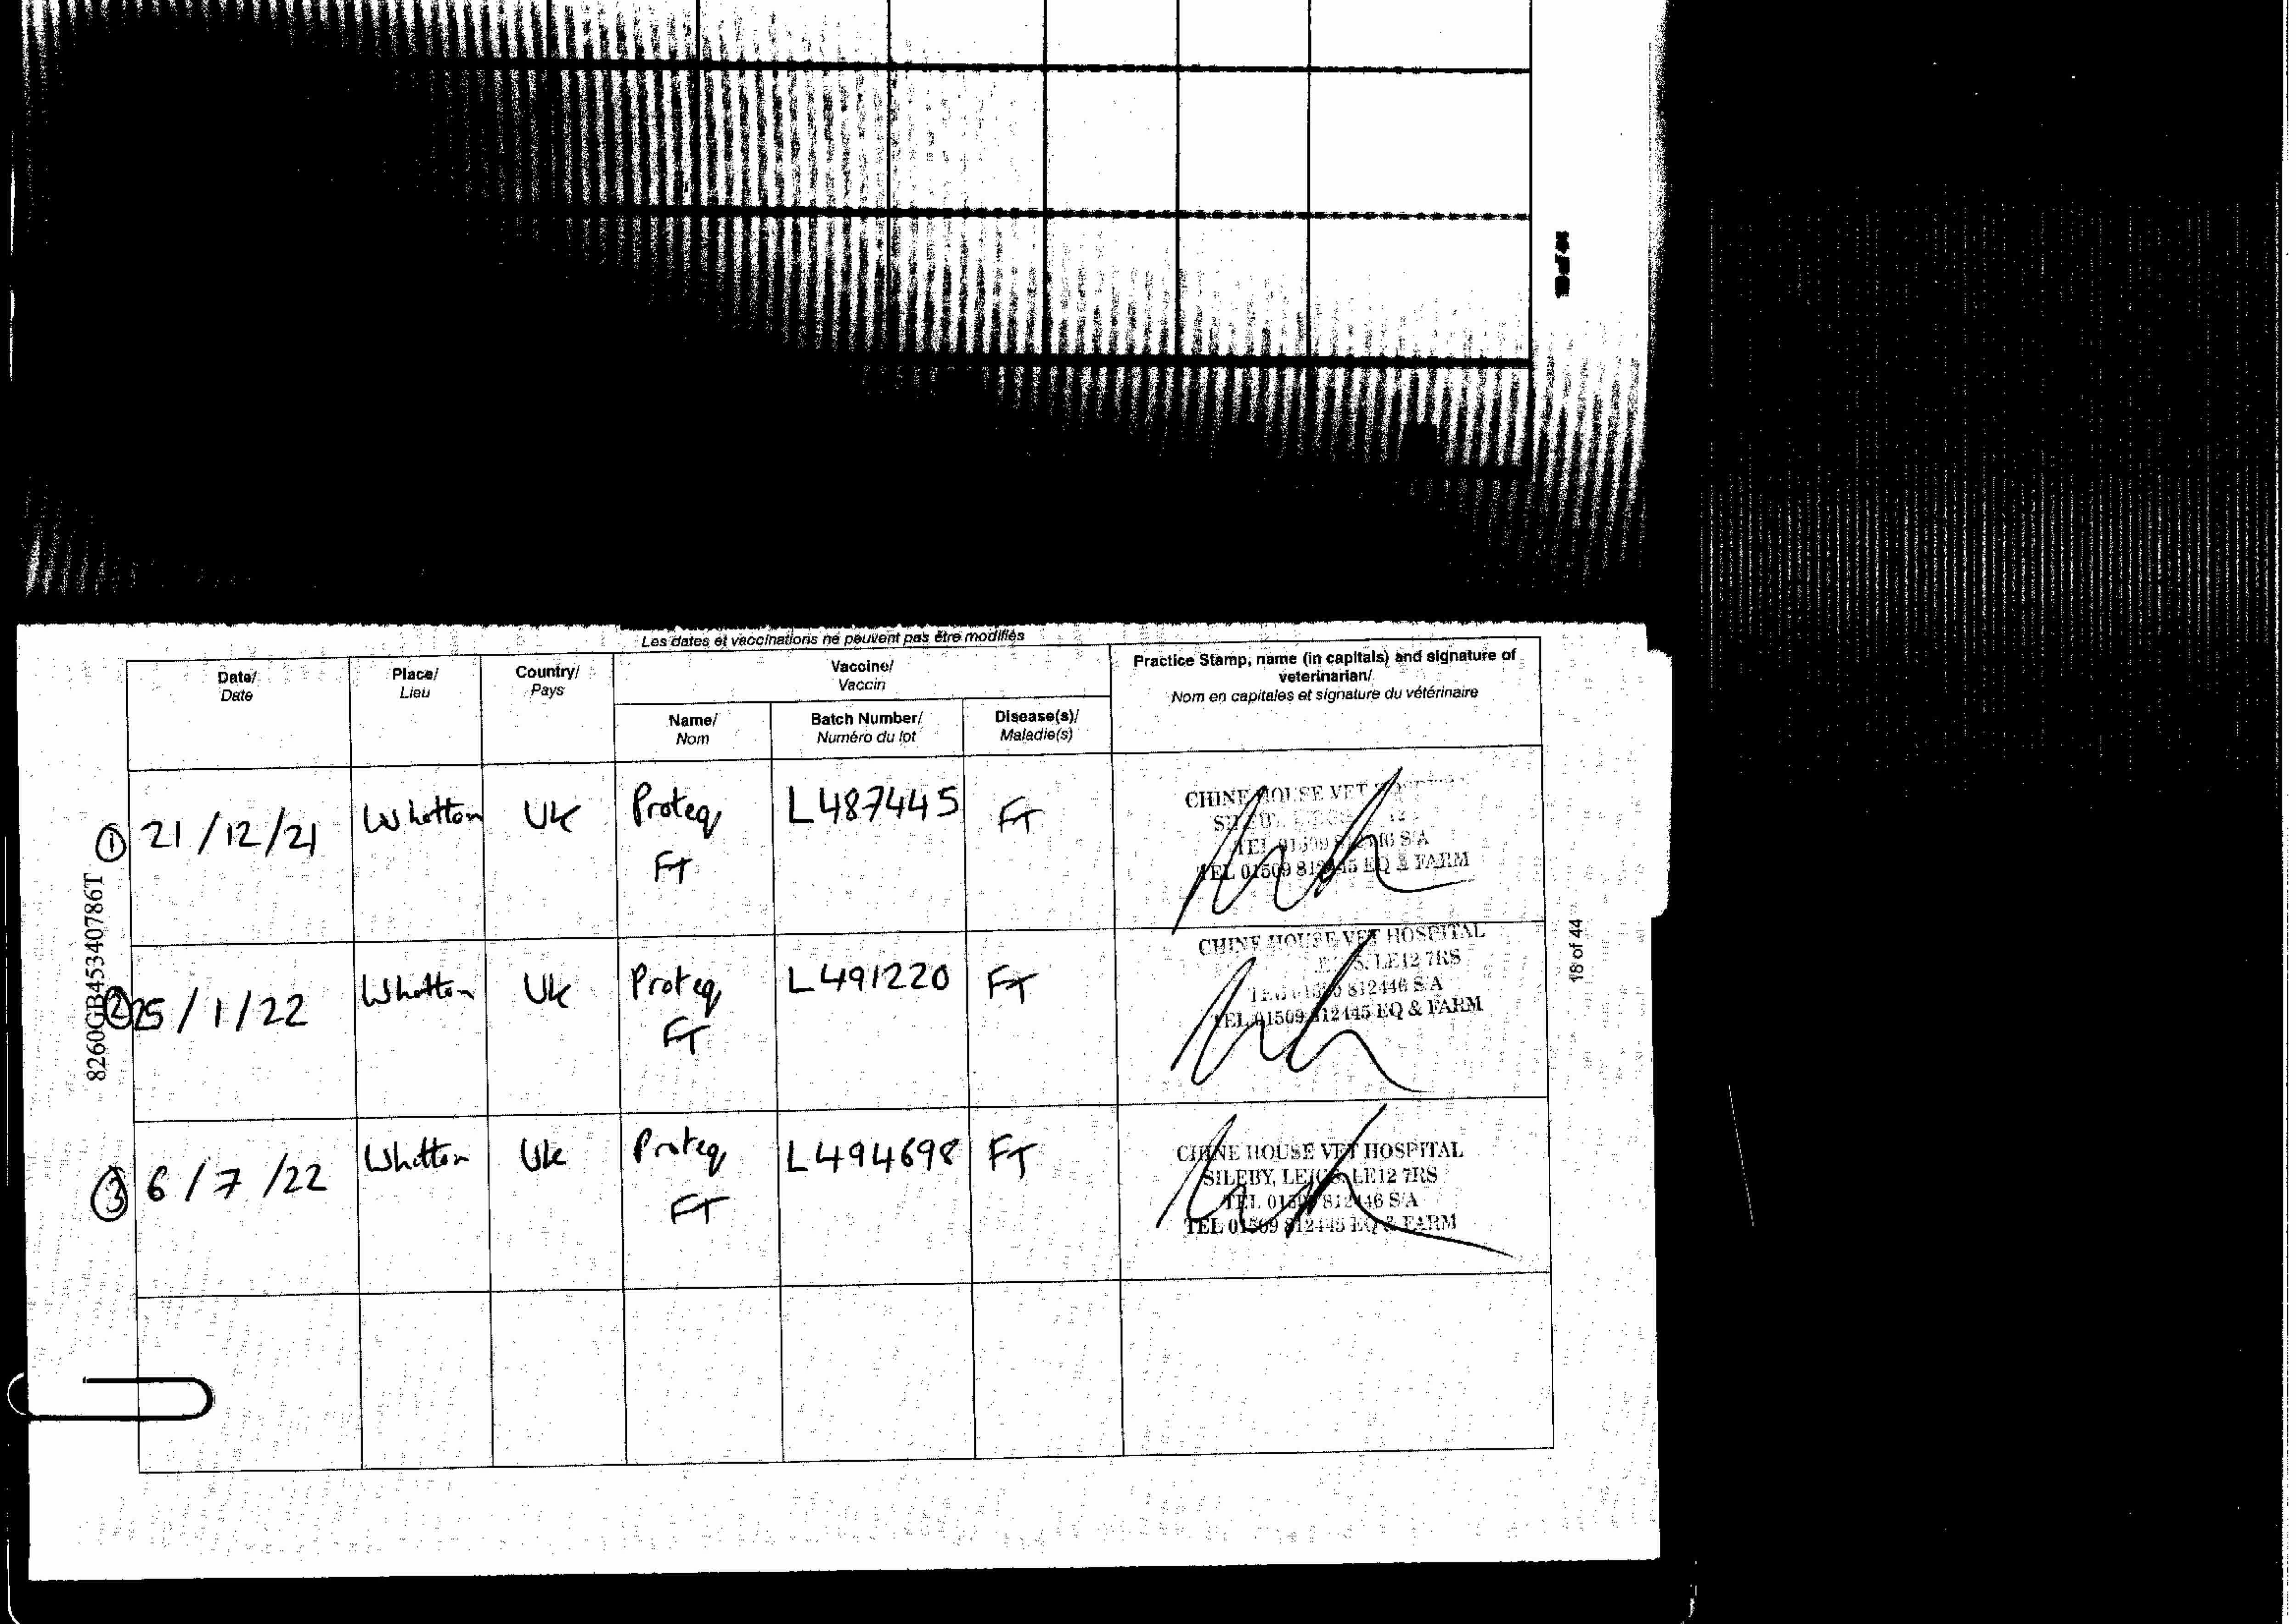 Les dates et vaccinations ne peuvent pas être modifiés
Date/ Date
Place/ Lieu
Country/ Pays
Vaccine/ Vaccin
Practice Stamp, name (in capitals) and signature of veterinarian/
Nom en capitales et signature du vétérinaire
Name/ Nom
Batch Number/ Numéro du lot
Disease(s)/ Maladie(s)
① 21/12/21 Whatton Uk Proteq FT L487445 FT
CHINE HOUSE VET
TEL 01509 S/A
TEL 01509 812445 EQ & FARM
② 25/1/22 Whatton Uk Proteq FT L491220 FT
CHINE HOUSE VET HOSPITAL
LE12 7RS
812446 S/A
TEL 01509 812445 EQ & FARM
③ 6/7/22 Whatton Uk Proteq FT L494698 FT
CHINE HOUSE VET HOSPITAL
SILEBY, LEICS. LE12 7RS
TEL 01509 812446 S/A
TEL 01509 812445 EQ & FARM
8260GB45340786T
18 of 44